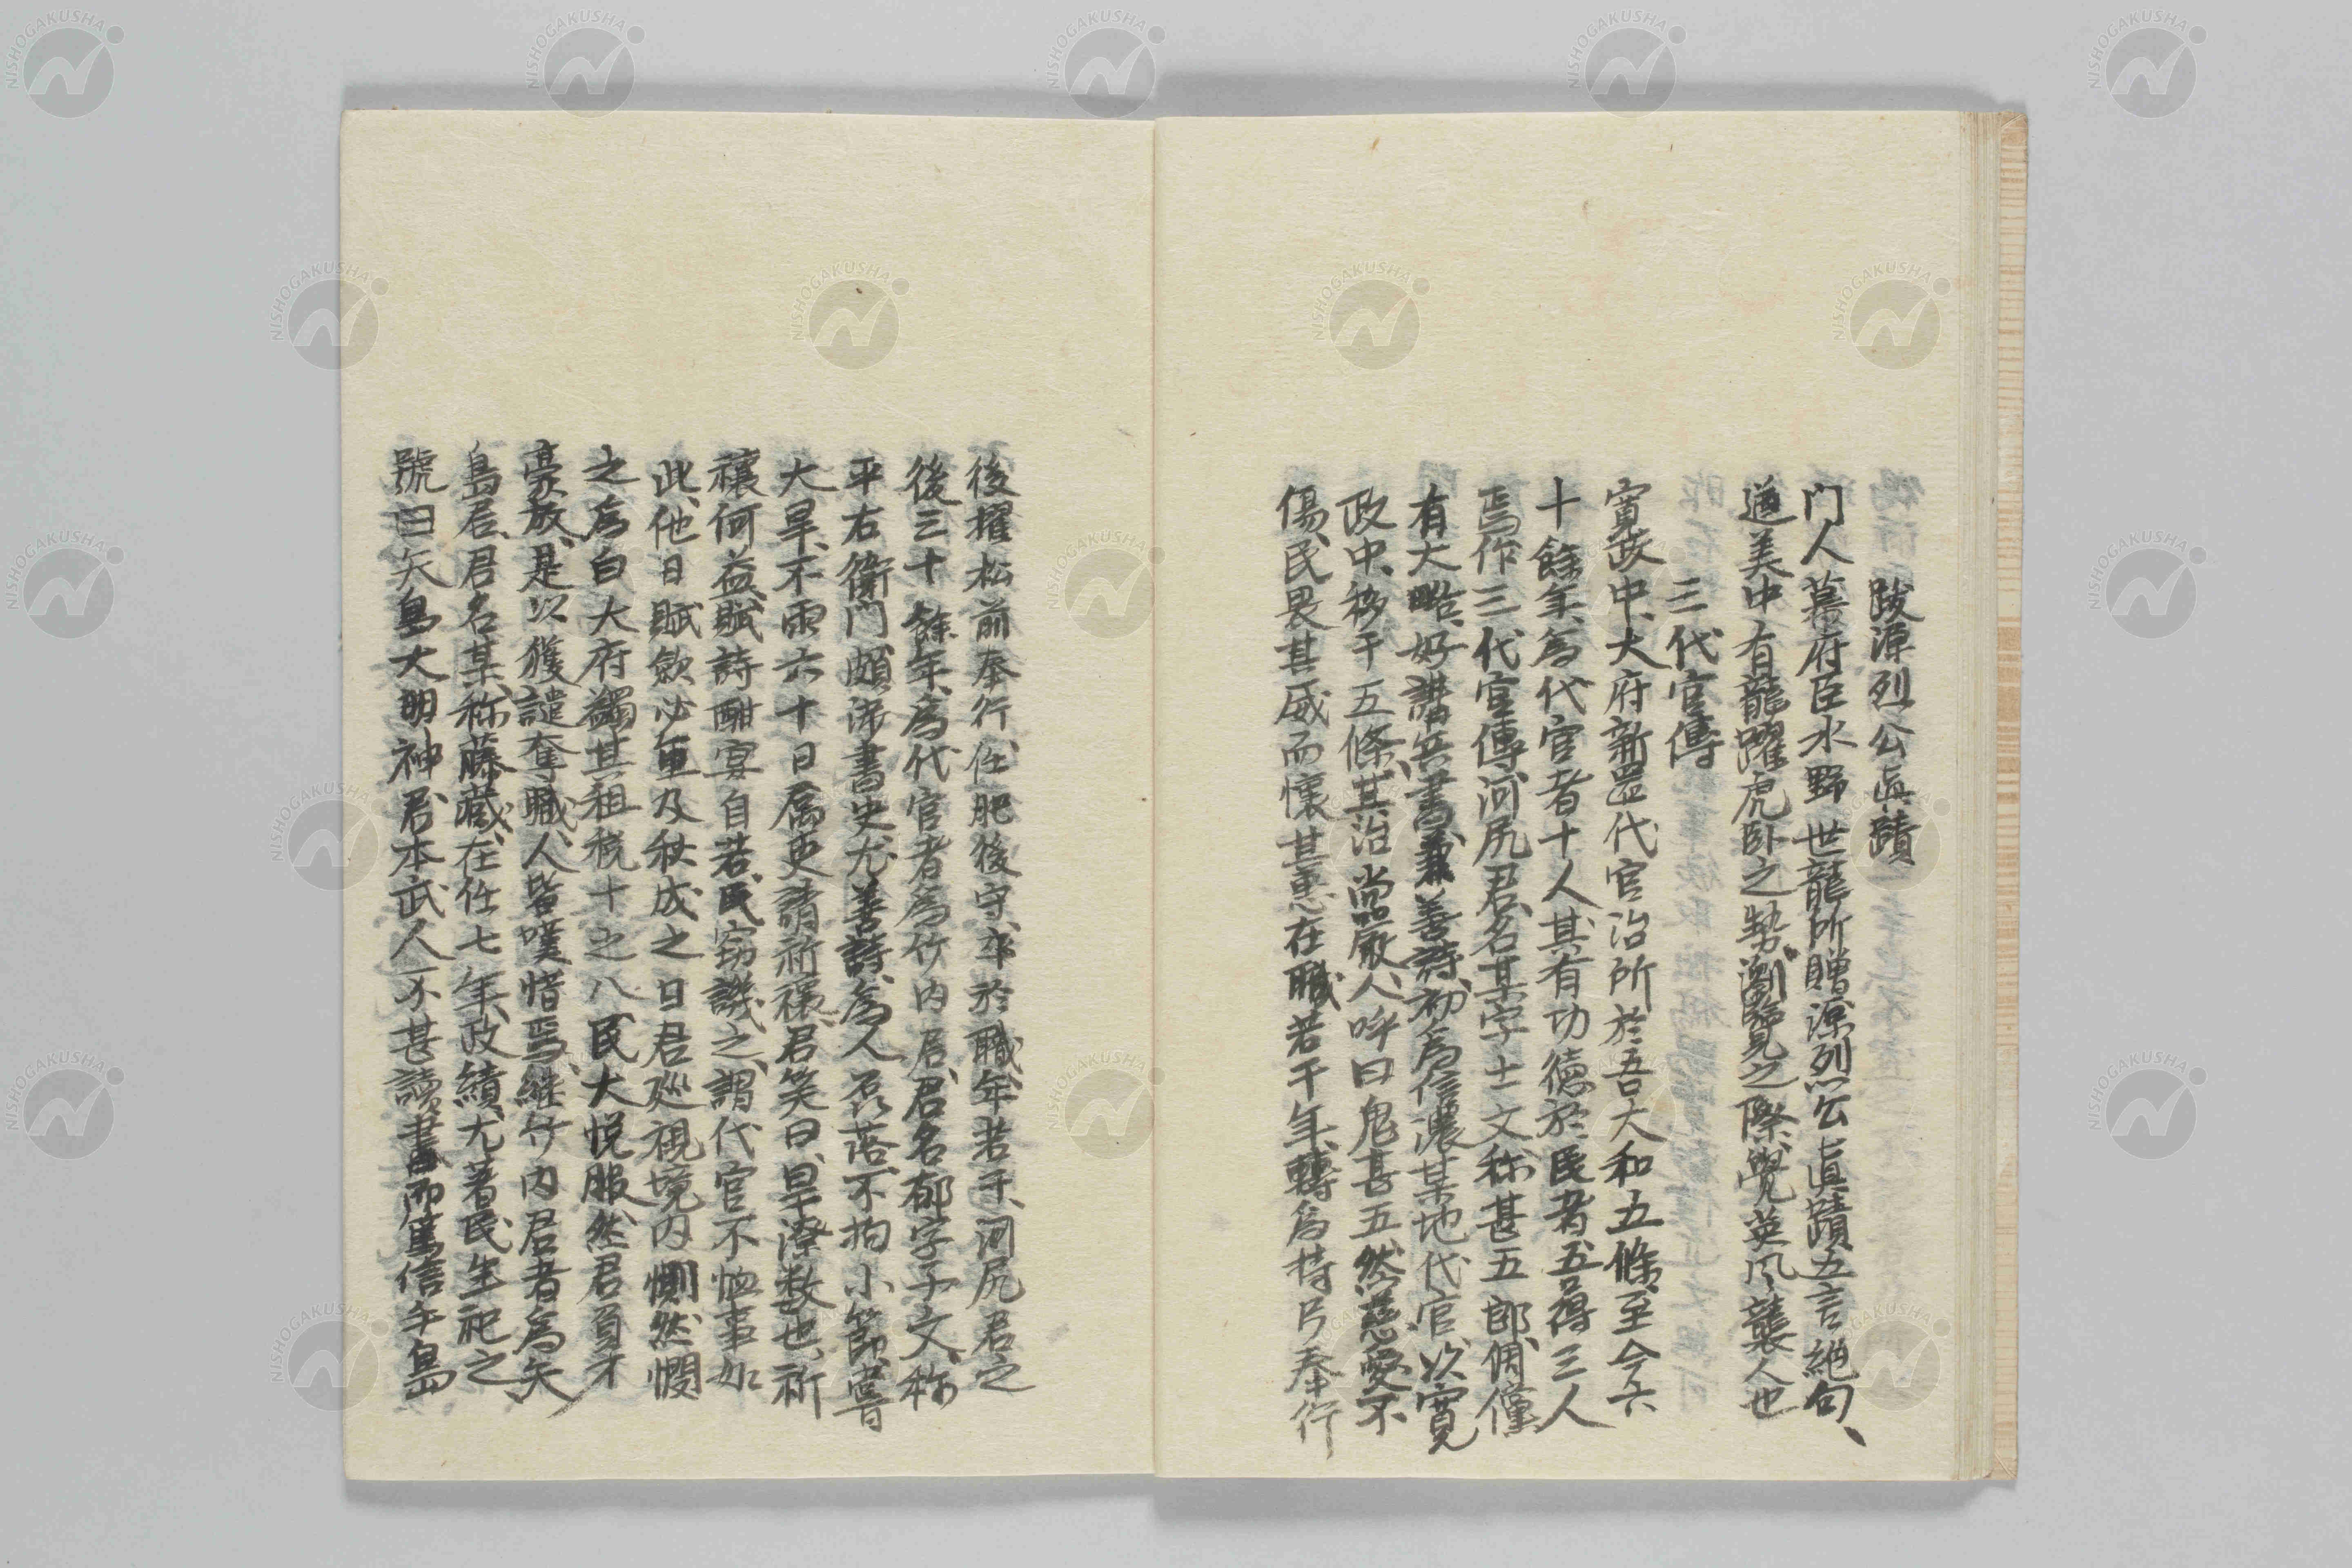 跋源烈公眞蹟
门人幕府臣水野世龍所贈源烈公眞蹟五言絶句、
遒美中有龍躍虎卧之勢、瀏覽之際、覺英風襲人也
三代官傳
寛政中、大府新置代官治所於吾大和五條、至今六
十餘年、爲代官者十人、其有功德於民者、五得三人
焉、作三代官傳、河尻君、名某字士文、称甚五郎、倜儻
有大略、好講兵書、兼善詩、初爲信濃某地代官、以寛
政中、移于五條、其治嚴、人呼曰鬼甚五、然慈愛不
傷、民畏其威而懷其惠、在職若干年、轉爲持弓奉行
後擢松前奉行、任肥後守、卒於職、年若干、河尻君之
後三十餘年、爲代官者爲竹内君、君名郁字子文、称
平右衛门、頗涉書史、尤善詩、爲人磊落、不拘小節、嘗
大旱、不雨六十日、属吏請祈禳、君笑曰、旱潦数也、祈
禳何益、賦詩酣宴自若、民窃譏之、謂代官不恤事如
此、他日賦斂必重、及秋成之日、君廵視境内、惻然憫
之、爲白大府、蠲其租税十之八、民大悦服、然君負才
豪放、是以獲譴奪職、人皆嘆惜焉、継竹内君者爲矢
島君、君名某、称藤藏、在任七年、政績尤著、民生祀之
號曰矢島大明神、君本武人、不甚讀書、而篤信手島
NISHOGAKUSHA